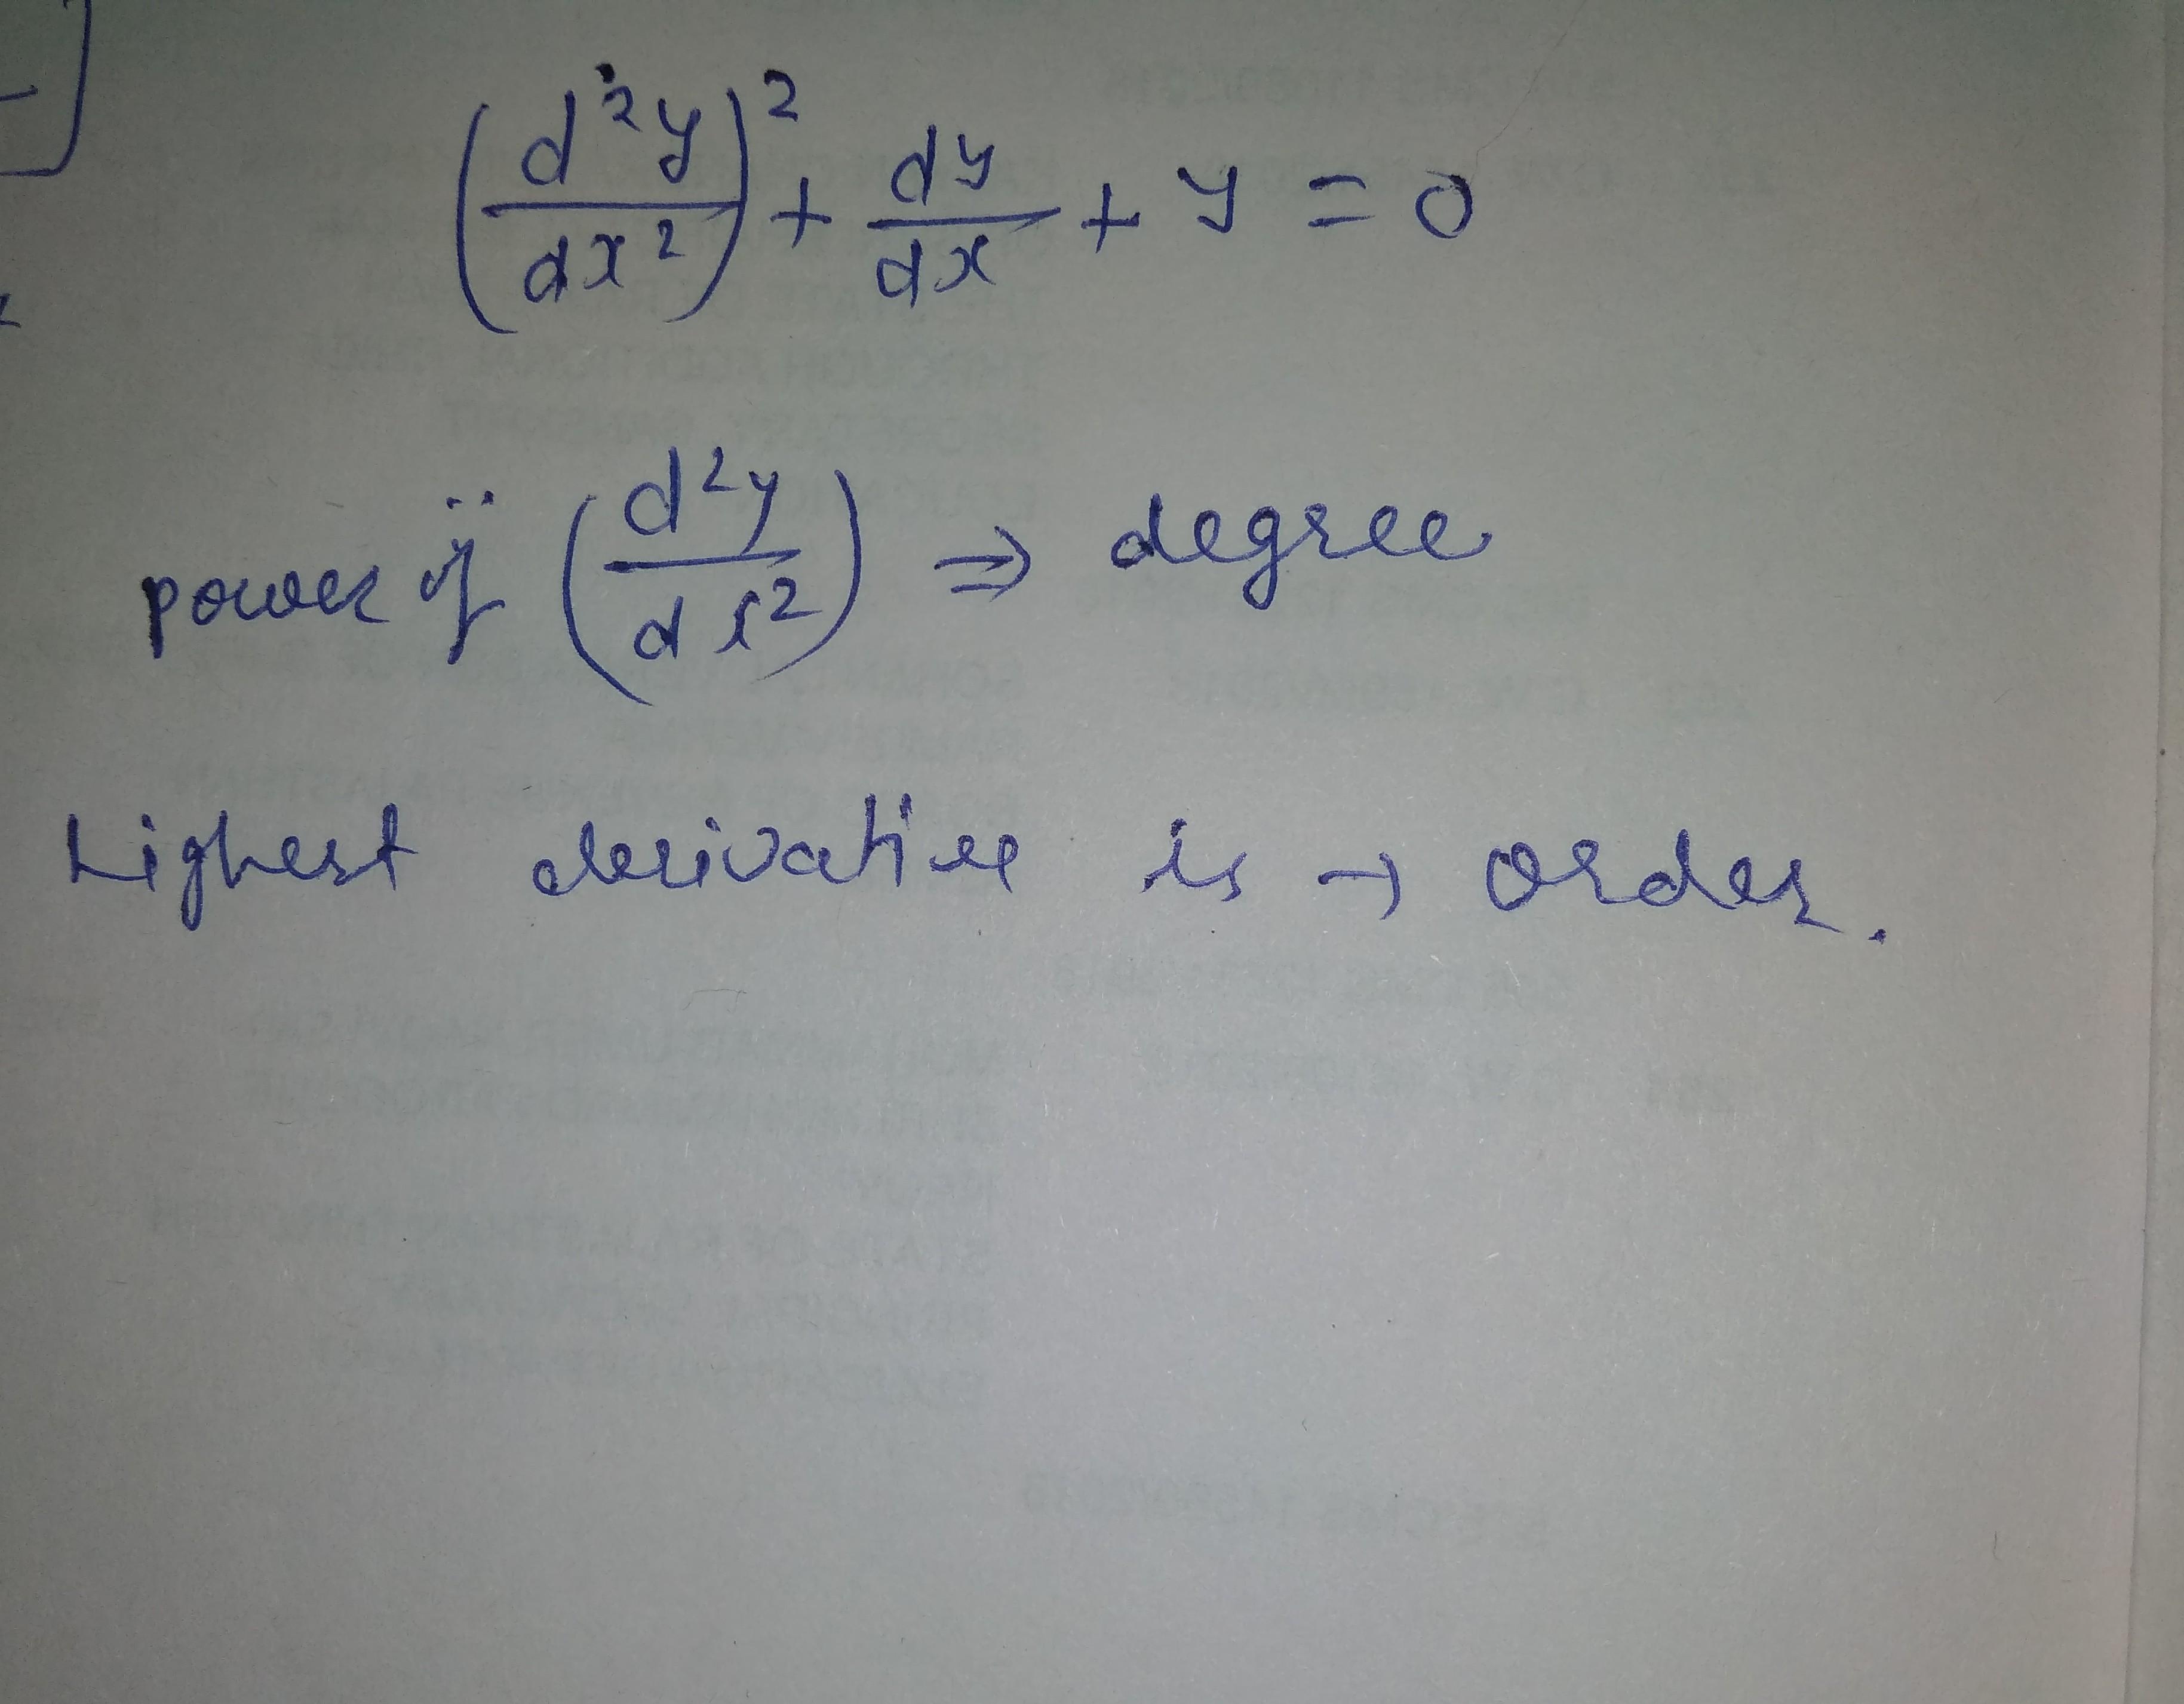 (d²y/dx²)² + dy/dx + y = 0
power of (d²y/dx²) ⇒ degree
Highest derivative is → order.